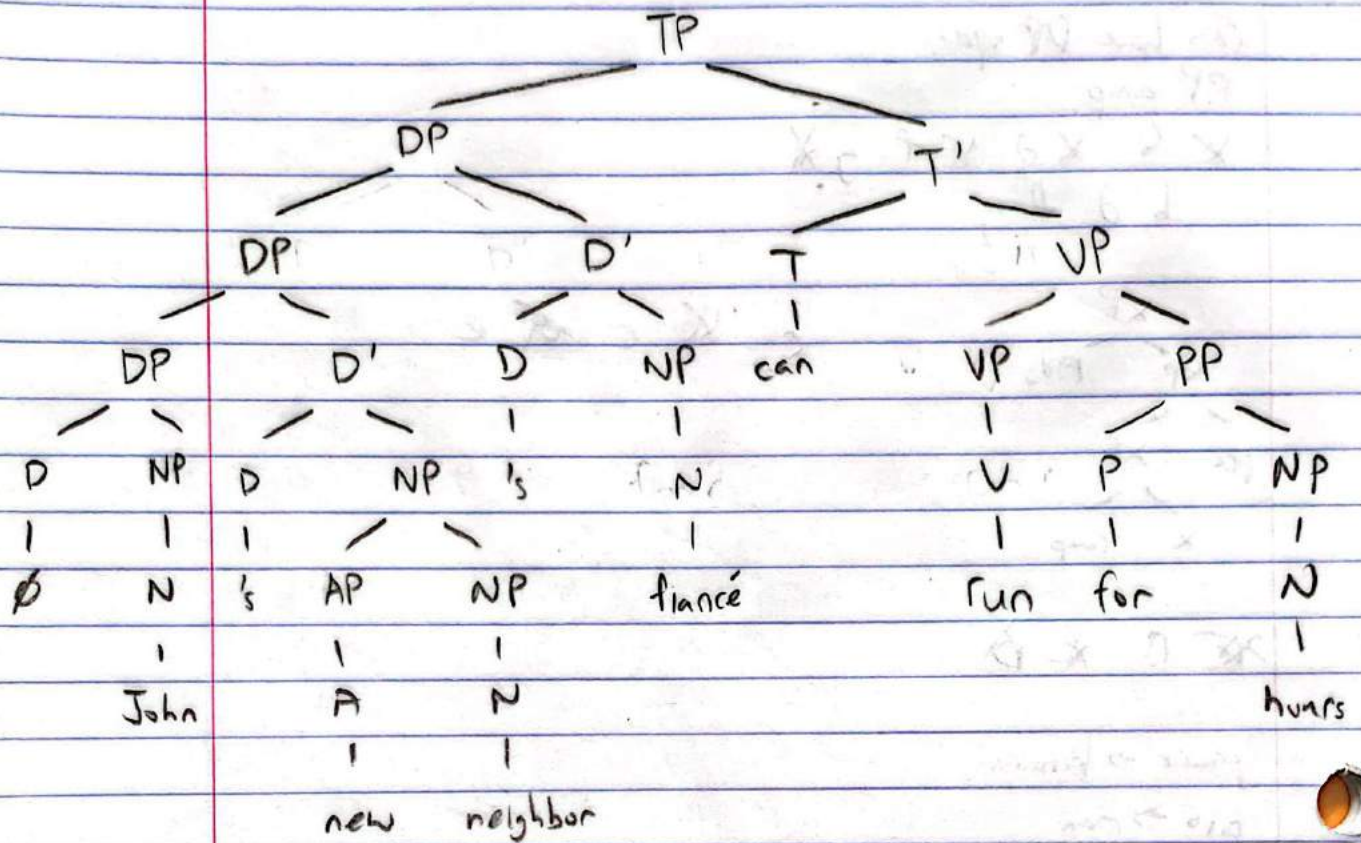 TP
DP T'
DP D' T VP
DP D' D NP can VP PP
D NP D NP 's N V P NP
Ø N 's AP NP fiancé run for N
John A N hours
new neighbor